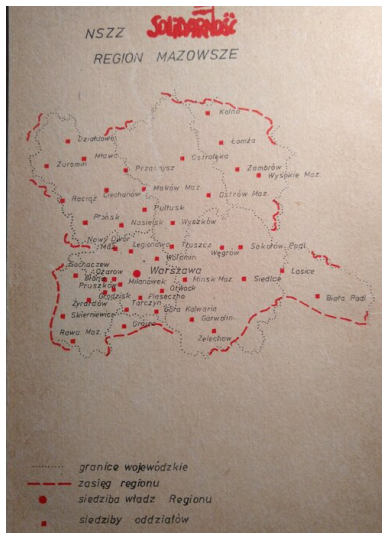 NSZZ SOLIDARNOŚĆ
REGION MAZOWSZE
Kolno
Działdowo
Łomża
Mława
Ostrołęka
Żuromin
Przasnysz
Zambrów
Wysokie Maz.
Ciechanów
Maków Maz.
Ostrów Maz.
Raciąż
Pułtusk
Płońsk
Nasielsk
Wyszków
Nowy Dwór
Maz.
Legionowo
Tłuszcz
Węgrów
Sokołów Ppdl.
Wołomin
Sochaczew
Warszawa
Ożarów
Błonie
Milanówek
Mińsk Maz.
Siedlce
Łosice
Pruszków
Otwock
Grodzisk
Piaseczno
Biała Podl.
Żyrardów
Tarczyn
Góra Kalwaria
Skierniewice
Grójec
Garwolin
Rawa Maz.
Żelechów
granice wojewódzkie
zasięg regionu
siedziba władz Regionu
siedziby oddziałów